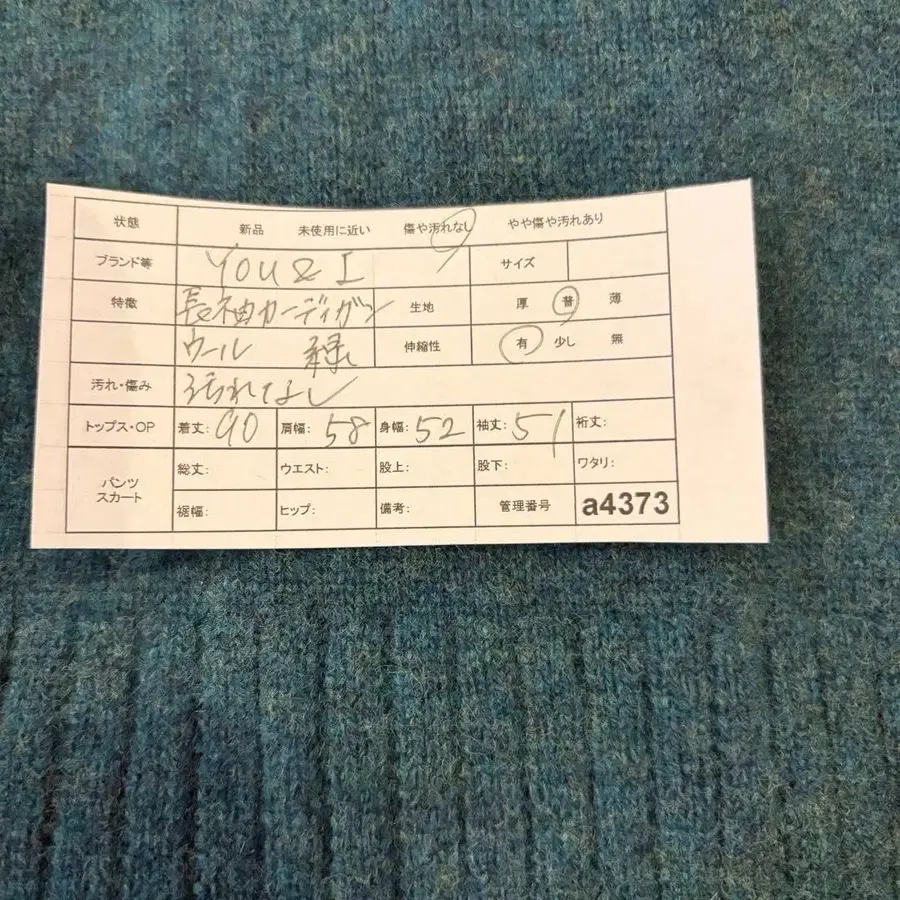 状態 新品 未使用に近い 傷や汚れなし やや傷や汚れあり
ブランド等 YOU & I サイズ
特徴 長袖カーディガン 生地 厚 普 薄
ウール 緑 伸縮性 有 少し 無
汚れ・傷み 汚れなし
トップス・OP 着丈: 90 肩幅: 58 身幅: 52 袖丈: 51 裄丈:
パンツ スカート 総丈: ウエスト: 股上: 股下: ワタリ:
裾幅: ヒップ: 備考: 管理番号 a4373